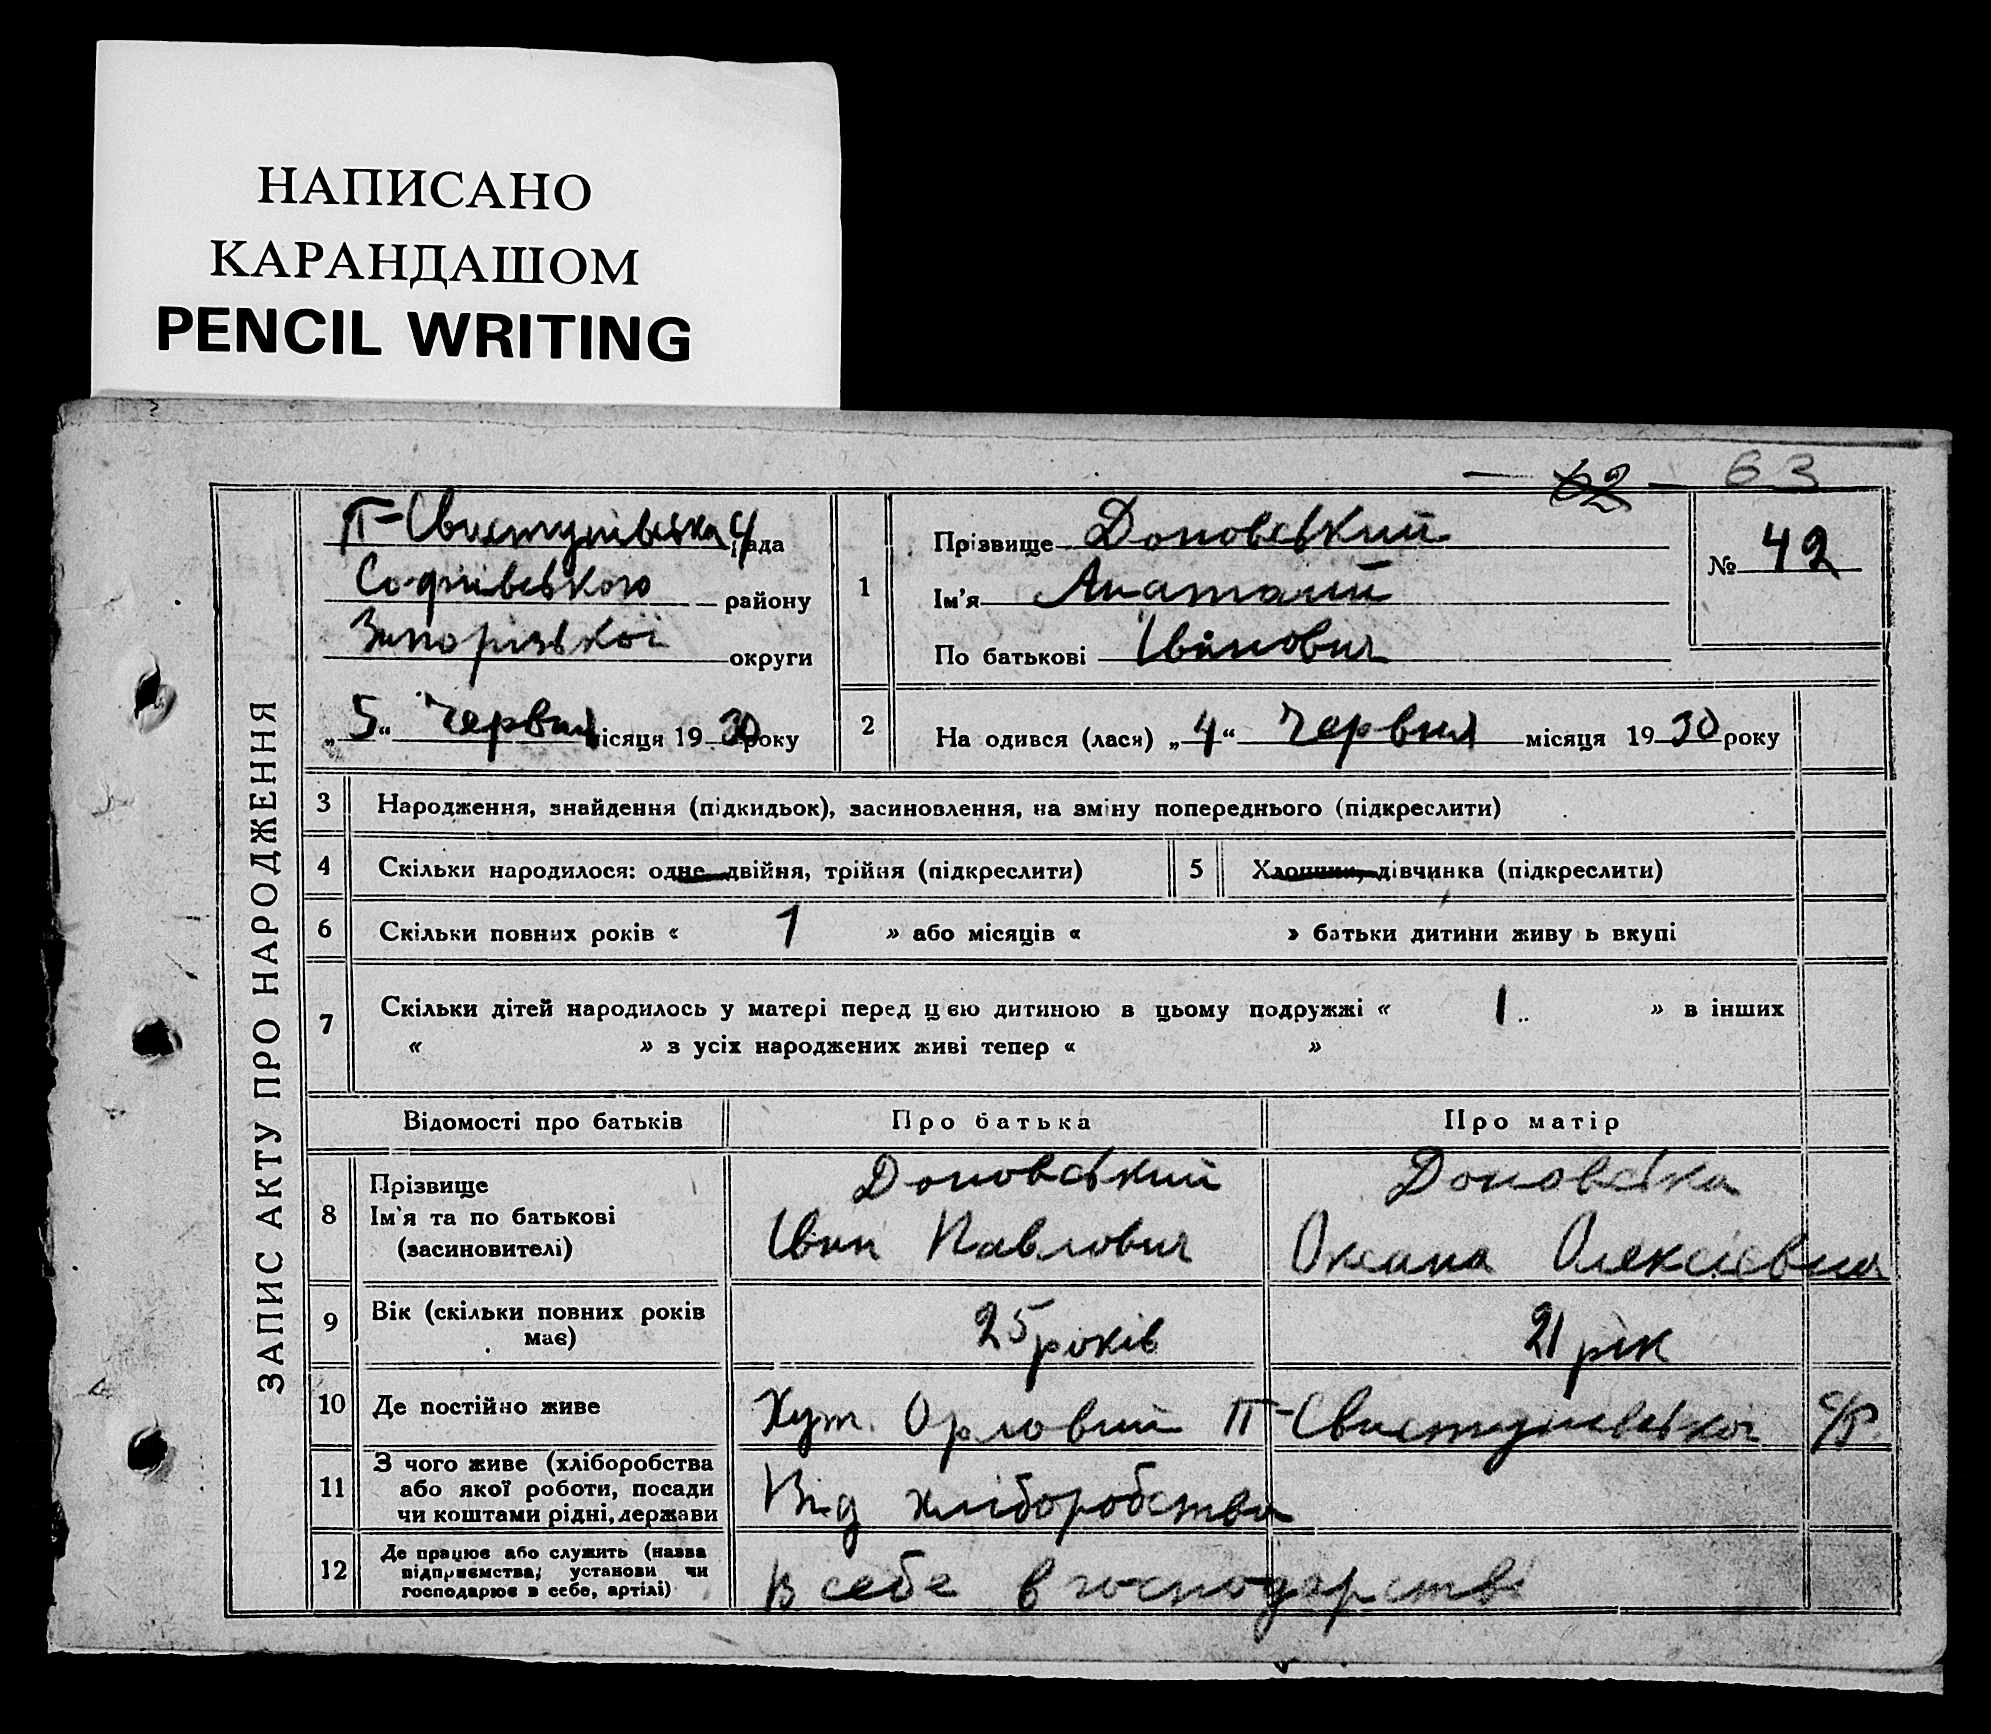 НАПИСАНО
КАРАНДАШОМ
PENCIL WRITING
— 62 — 63
ЗАПИС АКТУ ПРО НАРОДЖЕННЯ
П-Свистунівська рада
Софіївського району
Запорізької округи
„5“ Червня місяця 1930 року
1
Прізвище Доновський
Ім'я Анатолій
По батькові Іванович
№ 42
2 На одився (лася) „4“ Червня місяця 1930 року
3 Народження, знайдення (підкидьок), засиновлення, на зміну попереднього (підкреслити)
4 Скільки народилося: одне, двійня, трійня (підкреслити) 5 Хлопчик, дівчинка (підкреслити)
6 Скільки повних років « 1 » або місяців « » батьки дитини живу ь вкупі
7 Скільки дітей народилось у матері перед цією дитиною в цьому подружжі « 1 » в інших
« » з усіх народжених живі тепер « »
Відомості про батьків Про батька Про матір
8 Прізвище
Ім'я та по батькові
(засиновителі)
Доновський
Іван Павлович
Доновська
Оксана Олексієвна
9 Вік (скільки повних років
має)
25 років 21 рік
10 Де постійно живе Хут. Орловий П-Свистунівської с/р
11 З чого живе (хліборобства
або якої роботи, посади
чи коштами рідні, держави
Від хліборобства
12 Де працює або служить (назва
підприємства, установи чи
господарює в себе, артілі)
В себе в господарстві